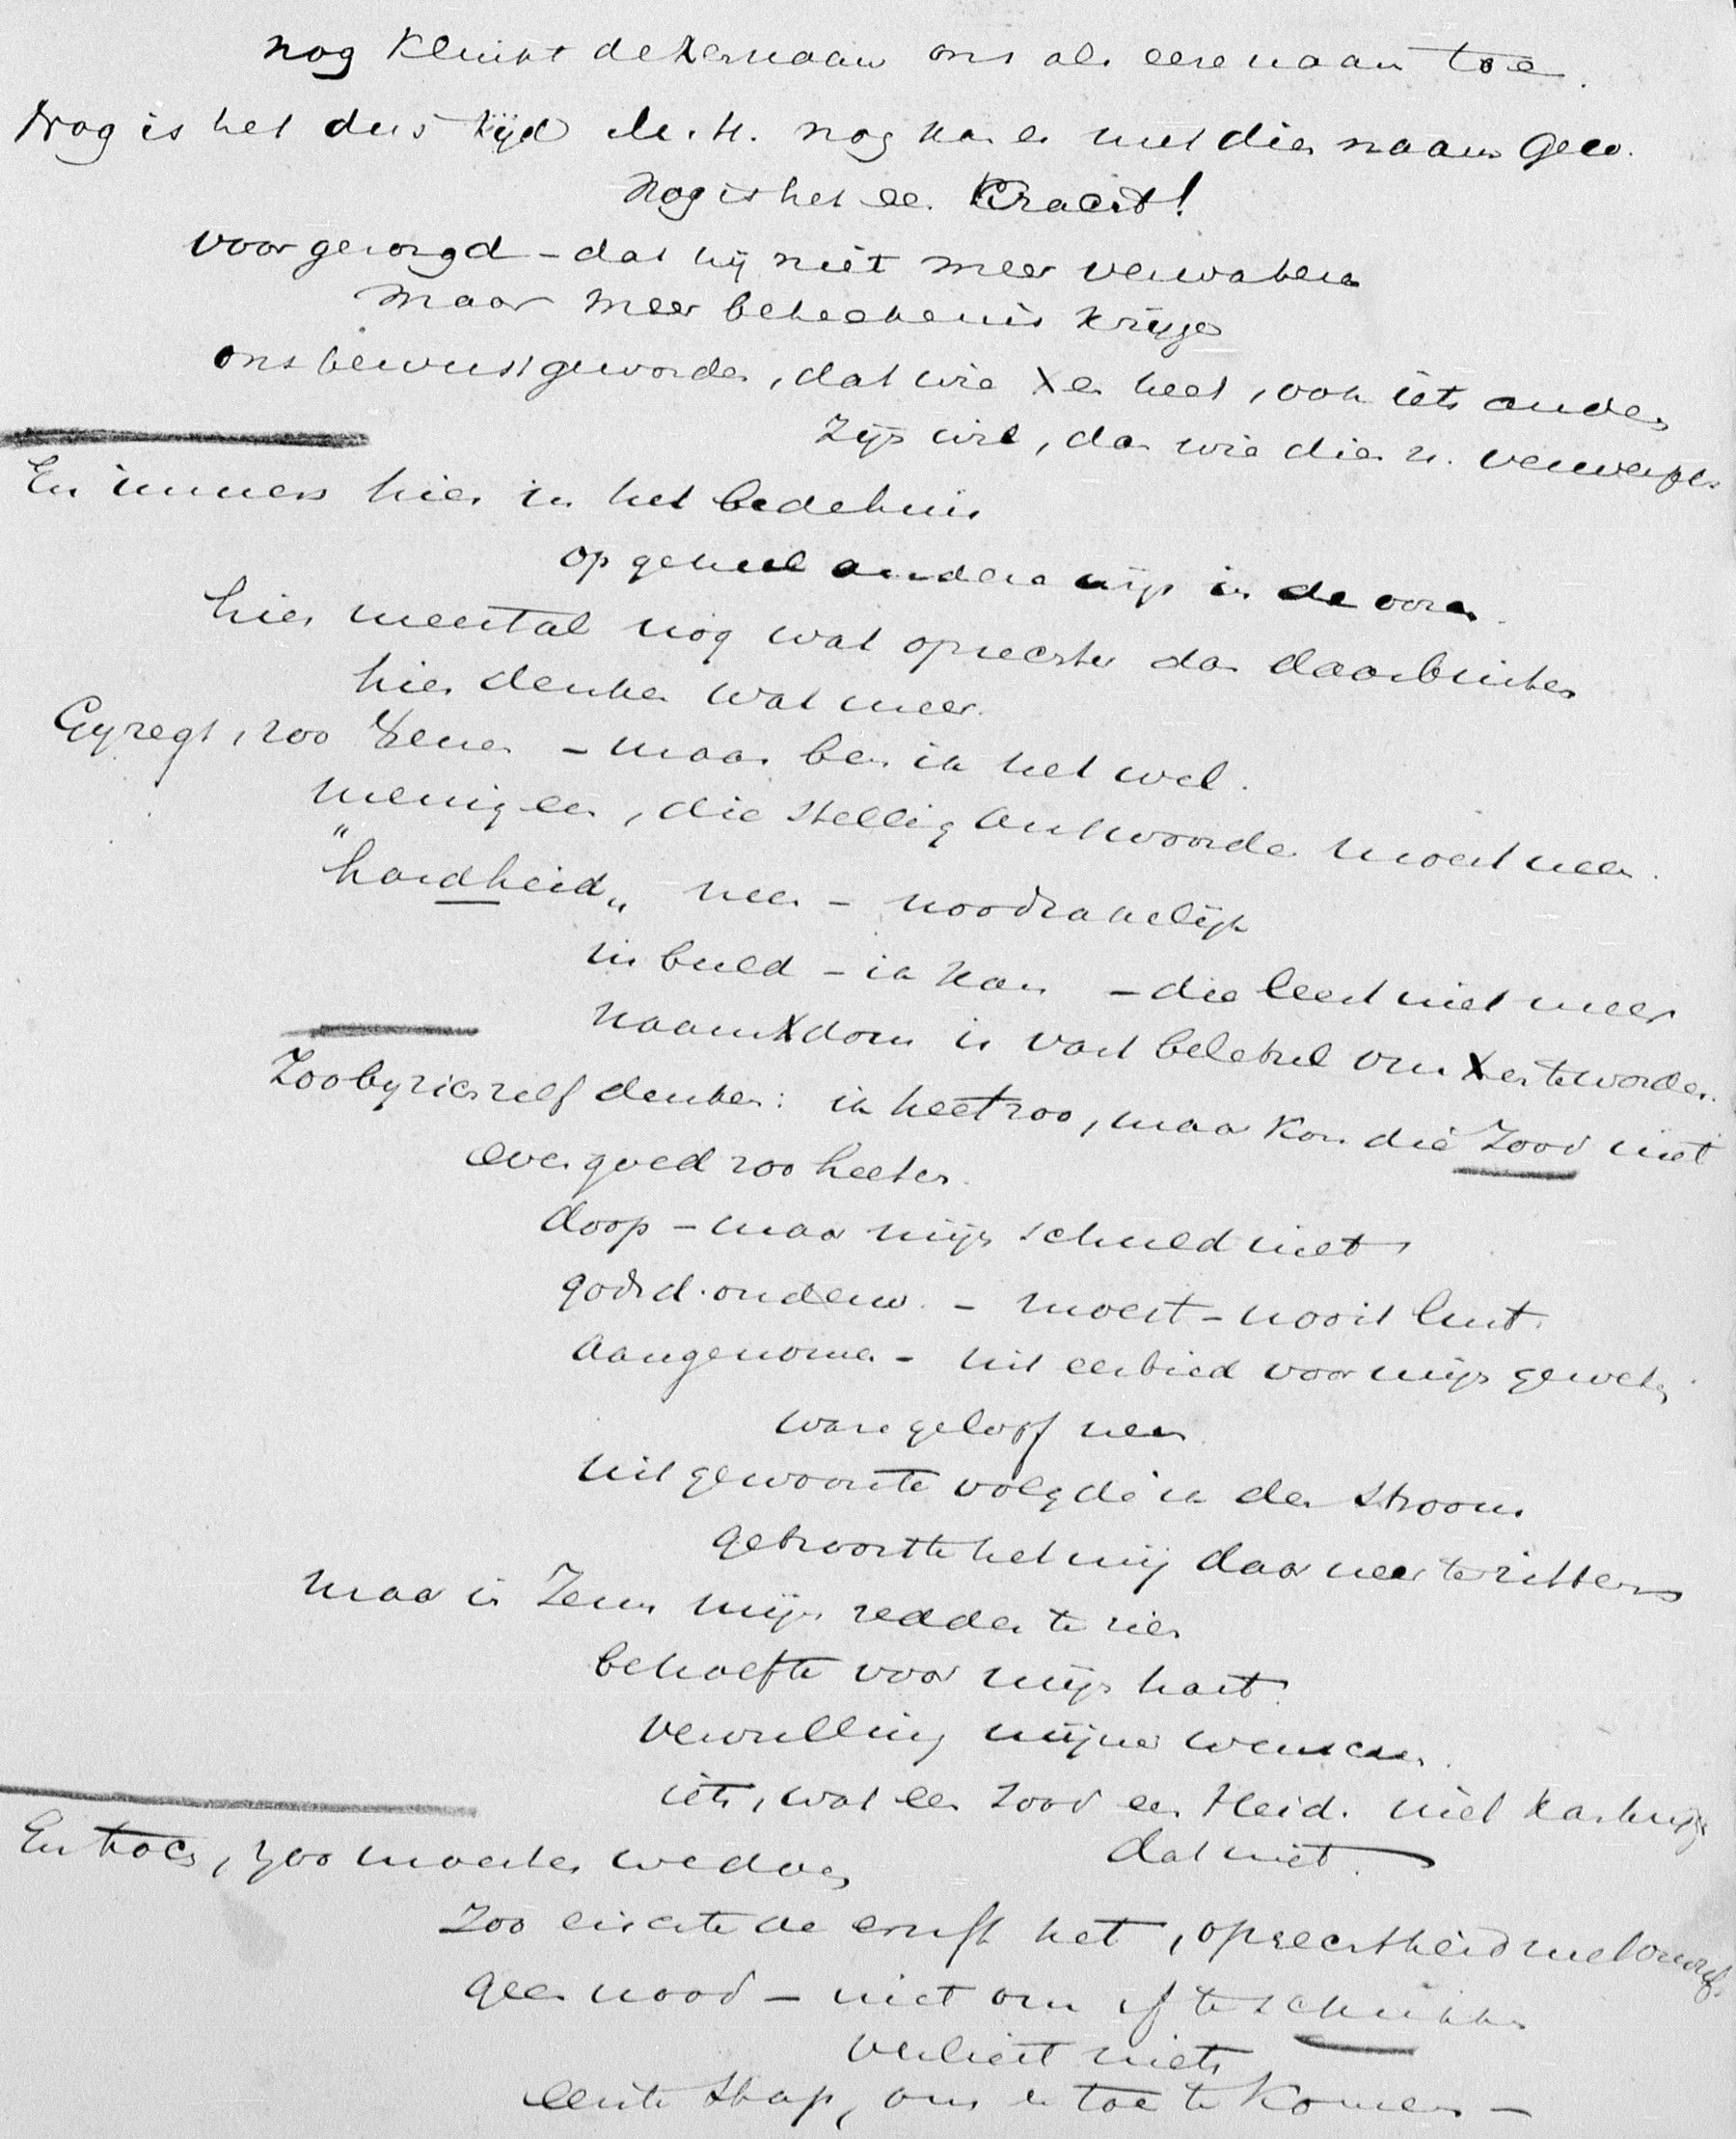 nog klinkt de Xernaam ons als eerenaam toe.
Nog is het dus tijd M.H. nog kan er met dien naam gew.
Nog is het ee. Kracht!
voor gezorgd - dat hij niet meer verwatere
maar meer beteekenis krijge
ons bewust geworden, dat wie Xen heet, ook iets anders
zijn wil, dan wie dien n. verwerpen
En immers hier in het bedehuis
op geheel andere wijs in de ooren.
hier meestal nog wat oprechter dan daarbuiten
hier denken wat meer.
Gij zegt, zoo Jezus - maar ben ik het wel.
menigeen, die stellig antwoorden moest neen.
"hardheid„ neen - noodzakelijk
inbeeld - ik kan - die leert niet meer
naamXdom is vast beletsel om Xen te worden.
Zoo bij zich zelf denken: ik heet zoo, maar kon die Jood niet
even goed zoo heeten.
doop - maar mijn schuld niet
godsd. onderw. - moest - nooit lust.
aangenomen - uit eerbied voor mijn geweten
ware geloof neen.
uit gewoonte volgde ik den stroom
getroostte het mij daar neer te zitten
maar in Jezus mijn redder te zien
behoefte voor mijn hart.
vervulling mijner wenschen.
iets, wat een Jood een Heid. niet kan krijgen
dat niet.
En toch, zoo moesten we doen
Zoo eischte de ernst het, oprechtheid met onszelf.
geen nood - niet om af te schrikken
verliest niets
eerste stap, om er toe te komen -